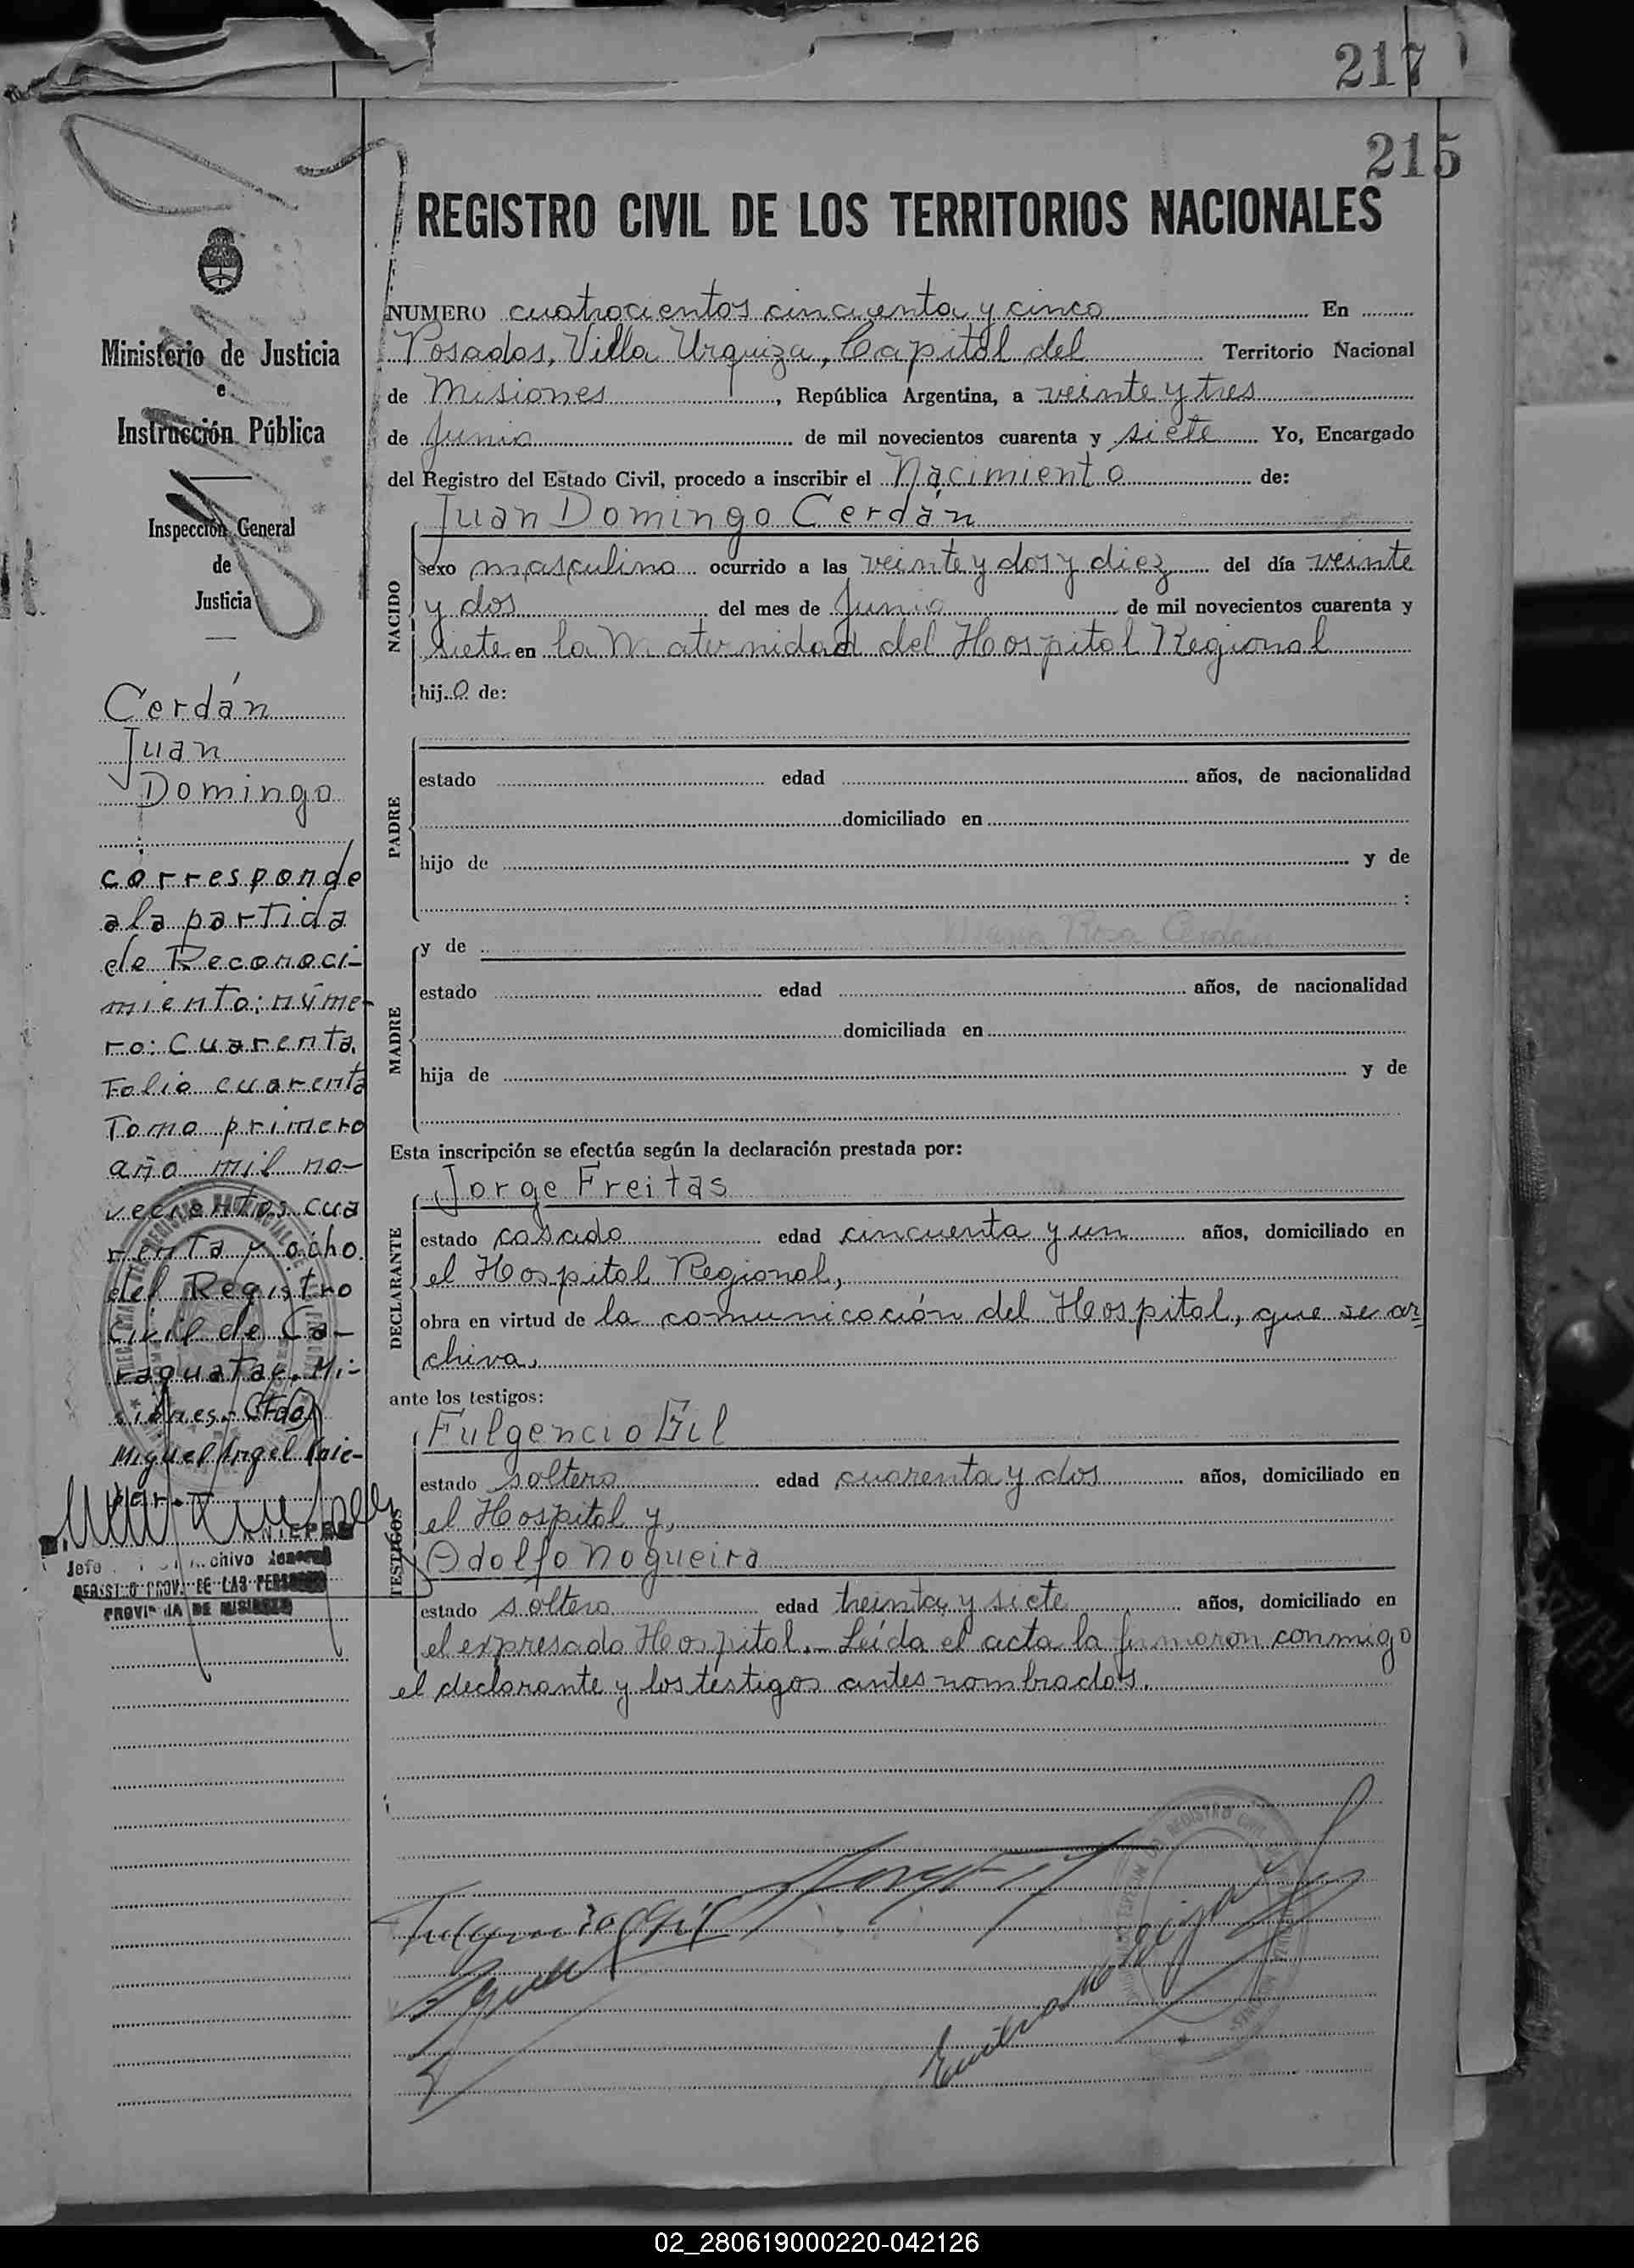 217
215
REGISTRO CIVIL DE LOS TERRITORIOS NACIONALES
Ministerio de Justicia
e
Instrucción Pública
Inspección General
de
Justicia
Cerdán
Juan
Domingo
corresponde
a la partida
de Reconoci-
miento: núme-
ro: Cuarenta.
Folio cuarenta
Tomo primero
año mil no-
vecientos cua
renta y ocho
del Registro
civil de Ca-
raguatay. Mi-
siones.- Fdo)
Miguel Angel
Jefe chivo
REGISTRO PROV. DE LAS PERSONAS
PROVINCIA DE MISIONES
NUMERO cuatrocientos cincuenta y cinco En
Posadas, Villa Urquiza, Capital del Territorio Nacional
de Misiones, República Argentina, a veinte y tres
de Junio de mil novecientos cuarenta y siete Yo, Encargado
del Registro del Estado Civil, procedo a inscribir el Nacimiento de:
NACIDO
Juan Domingo Cerdán
sexo masculino ocurrido a las veinte y dos y diez del día veinte
y dos del mes de Junio de mil novecientos cuarenta y
siete en la Maternidad del Hospital Regional
hijo de:
PADRE
estado edad años, de nacionalidad
domiciliado en
hijo de y de
:
MADRE
y de Maria Rosa Cerdán
estado edad años, de nacionalidad
domiciliada en
hija de y de
Esta inscripción se efectúa según la declaración prestada por:
DECLARANTE
Jorge Freitas
estado casado edad cincuenta y un años, domiciliado en
el Hospital Regional,
obra en virtud de la comunicación del Hospital, que se ar
chiva.
ante los testigos:
TESTIGOS
Fulgencio Gil
estado soltero edad cuarenta y dos años, domiciliado en
el Hospital y,
Odolfo Nogueira
estado soltero edad treinta y siete años, domiciliado en
el expresado Hospital.- Leída el acta la firmaron conmigo
el declarante y los testigos antes nombrados.
Fulgencio Gil
02_280619000220-042126